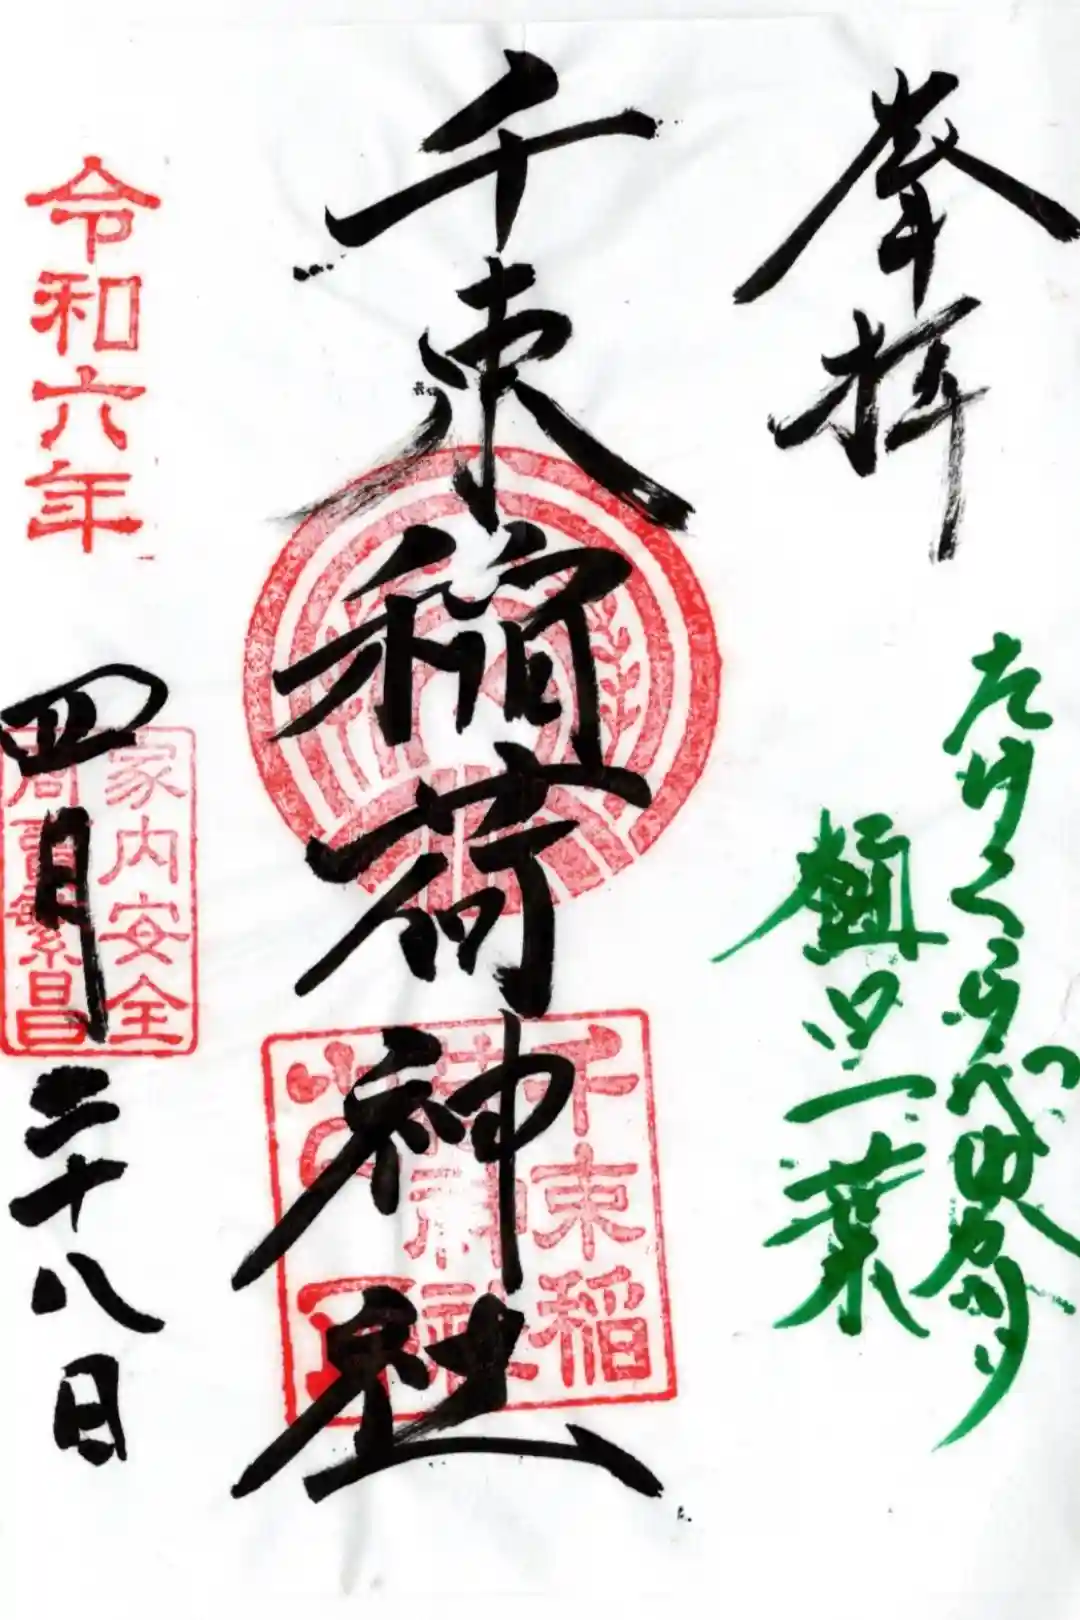 奉拝
たけくらべゆかり
樋口一葉
千束稲荷神社
千束稲
荷神社
令和六年
四月二十八日
家内安全
商売繁昌